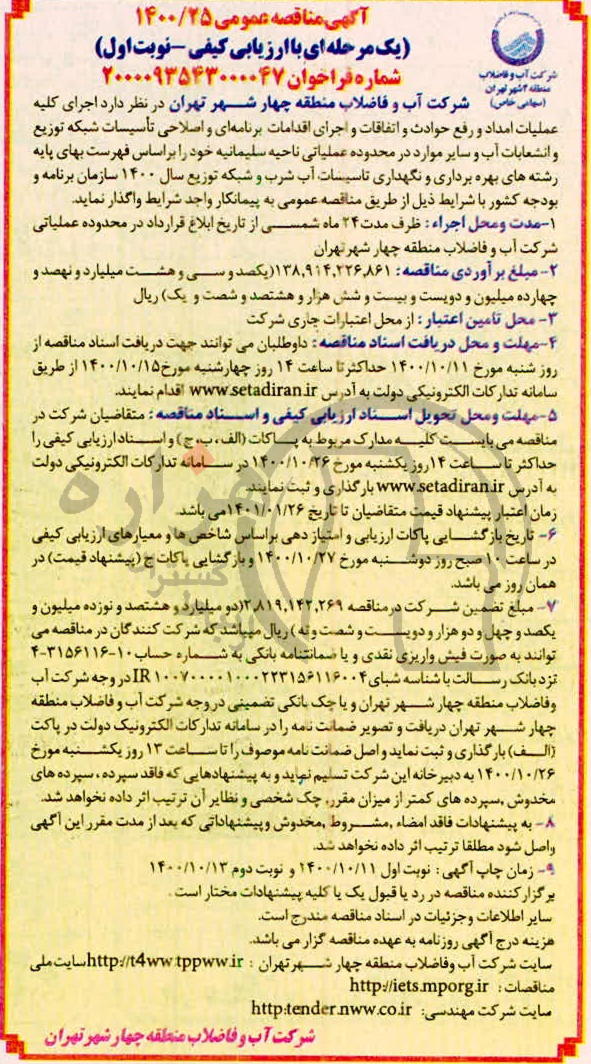 آگهی مناقصه عمومی ۱۴۰۰/۲۵
(یک مرحله ای با ارزیابی کیفی - نوبت اول)
شماره فراخوان ۲۰۰۰۰۹۳۵۴۳۰۰۰۰۴۷
شرکت آب و فاضلاب
منطقه ۴ شهر تهران
(سهامی خاص)
شرکت آب و فاضلاب منطقه چهار شهر تهران در نظر دارد اجرای کلیه
عملیات امداد و رفع حوادث و اتفاقات و اجرای اقدامات برنامه‌ای و اصلاحی تأسیسات شبکه توزیع
و انشعابات آب و سایر موارد در محدوده عملیاتی ناحیه سلیمانیه خود را براساس فهرست بهای پایه
رشته های بهره برداری و نگهداری تاسیسات آب شرب و شبکه توزیع سال ۱۴۰۰ سازمان برنامه و
بودجه کشور با شرایط ذیل از طریق مناقصه عمومی به پیمانکار واجد شرایط واگذار نماید.
۱-مدت ومحل اجراء : ظرف مدت ۲۴ ماه شمسی از تاریخ ابلاغ قرارداد در محدوده عملیاتی
شرکت آب و فاضلاب منطقه چهار شهر تهران
۲- مبلغ برآوردی مناقصه : ۱۳۸,۹۱۴,۲۲۶,۸۶۱(یکصد و سی و هشت میلیارد و نهصد و
چهارده میلیون و دویست و بیست و شش هزار و هشتصد و شصت و یک) ریال
۳- محل تامین اعتبار : از محل اعتبارات جاری شرکت
۴-مهلت و محل دریافت اسناد مناقصه : داوطلبان می توانند جهت دریافت اسناد مناقصه از
روز شنبه مورخ ۱۴۰۰/۱۰/۱۱ حداکثر تا ساعت ۱۴ روز چهارشنبه مورخ ۱۴۰۰/۱۰/۱۵ از طریق
سامانه تدارکات الکترونیکی دولت به آدرس www.setadiran.ir اقدام نمایند.
۵-مهلت ومحل تحویل اسناد ارزیابی کیفی و اسناد مناقصه : متقاضیان شرکت در
مناقصه می بایست کلیه مدارک مربوط به پاکات (الف ، ب، ج) و اسناد ارزیابی کیفی را
حداکثر تا ساعت ۱۴ روز یکشنبه مورخ ۱۴۰۰/۱۰/۲۶ در سامانه تدارکات الکترونیکی دولت
به آدرس www.setadiran.ir بارگذاری و ثبت نمایند.
زمان اعتبار پیشنهاد قیمت متقاضیان تا تاریخ ۱۴۰۱/۰۱/۲۶ می باشد.
۶- تاریخ بازگشایی پاکات ارزیابی و امتیاز دهی براساس شاخص ها و معیارهای ارزیابی کیفی
در ساعت ۱۰ صبح روز دوشنبه مورخ ۱۴۰۰/۱۰/۲۷ و بازگشایی پاکات ج (پیشنهاد قیمت) در
همان روز می باشد.
۷- مبلغ تضمین شرکت درمناقصه ۲,۸۱۹,۱۴۲,۲۶۹(دو میلیارد و هشتصد و نوزده میلیون و
یکصد و چهل و دو هزار و دویست و شصت و نه ) ریال میباشد که شرکت کنندگان در مناقصه می
توانند به صورت فیش واریزی نقدی و یا ضمانتنامه بانکی به شماره حساب ۱۰-۳۱۵۶۱۱۶-۴
نزد بانک رسالت با شناسه شبای IR ۱۰۰۷۰۰۰۰۱۰۰۰۲۲۳۱۵۶۱۱۶۰۰۴ در وجه شرکت آب
وفاضلاب منطقه چهار شهر تهران و یا چک بانکی تضمینی در وجه شرکت آب و فاضلاب منطقه
چهار شهر تهران دریافت و تصویر ضمانت نامه را در سامانه تدارکات الکترونیک دولت در پاکت
(الف) بارگذاری و ثبت نماید و اصل ضمانت نامه موصوف را تا ساعت ۱۳ روز یکشنبه مورخ
۱۴۰۰/۱۰/۲۶ به دبیرخانه این شرکت تسلیم نماید و به پیشنهادهایی که فاقد سپرده ، سپرده های
مخدوش ,سپرده های کمتر از میزان مقرر, چک شخصی و نظایر آن ترتیب اثر داده نخواهد شد.
۸- به پیشنهادات فاقد امضاء ,مشروط ,مخدوش وپیشنهاداتی که بعد از مدت مقرر این آگهی
واصل شود مطلقا ترتیب اثر داده نخواهد شد.
۹- زمان چاپ آگهی : نوبت اول ۱۴۰۰/۱۰/۱۱ و نوبت دوم ۱۴۰۰/۱۰/۱۳
برگزار کننده مناقصه در رد یا قبول یک یا کلیه پیشنهادات مختار است .
سایر اطلاعات وجزئیات در اسناد مناقصه مندرج است.
هزینه درج آگهی روزنامه به عهده مناقصه گزار می باشد.
سایت شرکت آب وفاضلاب منطقه چهار شهر تهران : http://t4ww.tppww.ir سایت ملی
مناقصات : http://iets.mporg.ir
سایت شرکت مهندسی: http:tender.nww.co.ir
شرکت آب و فاضلاب منطقه چهار شهر تهران